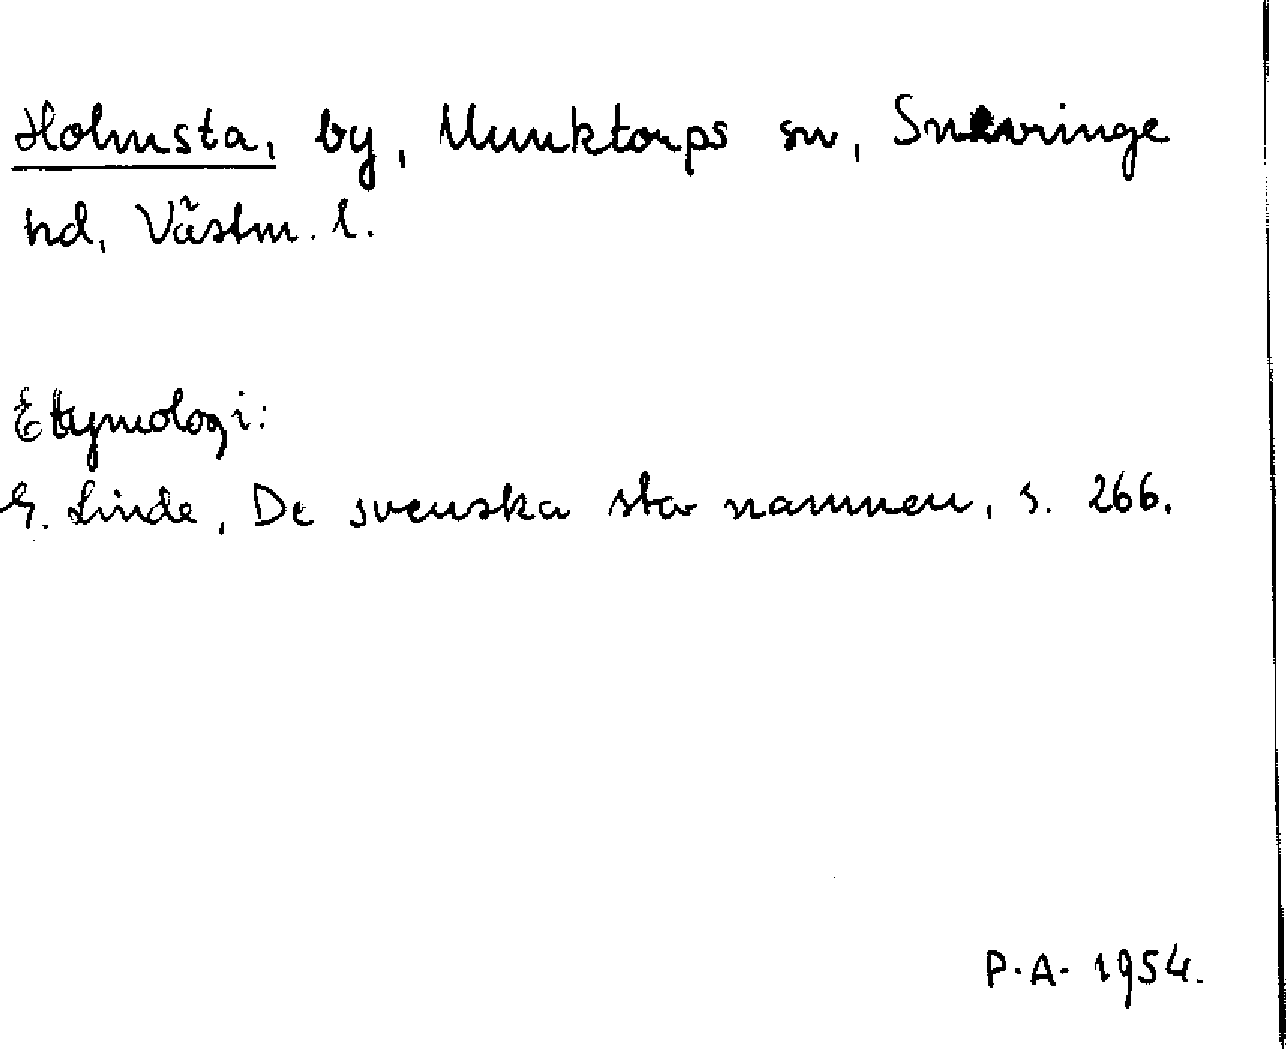 Holmsta, by, Munktorps sn, Snevringe
hd, Västm. l.
Etymologi:
G. Linde, De svenska sta namnen, s. 266.
P.A. 1954.